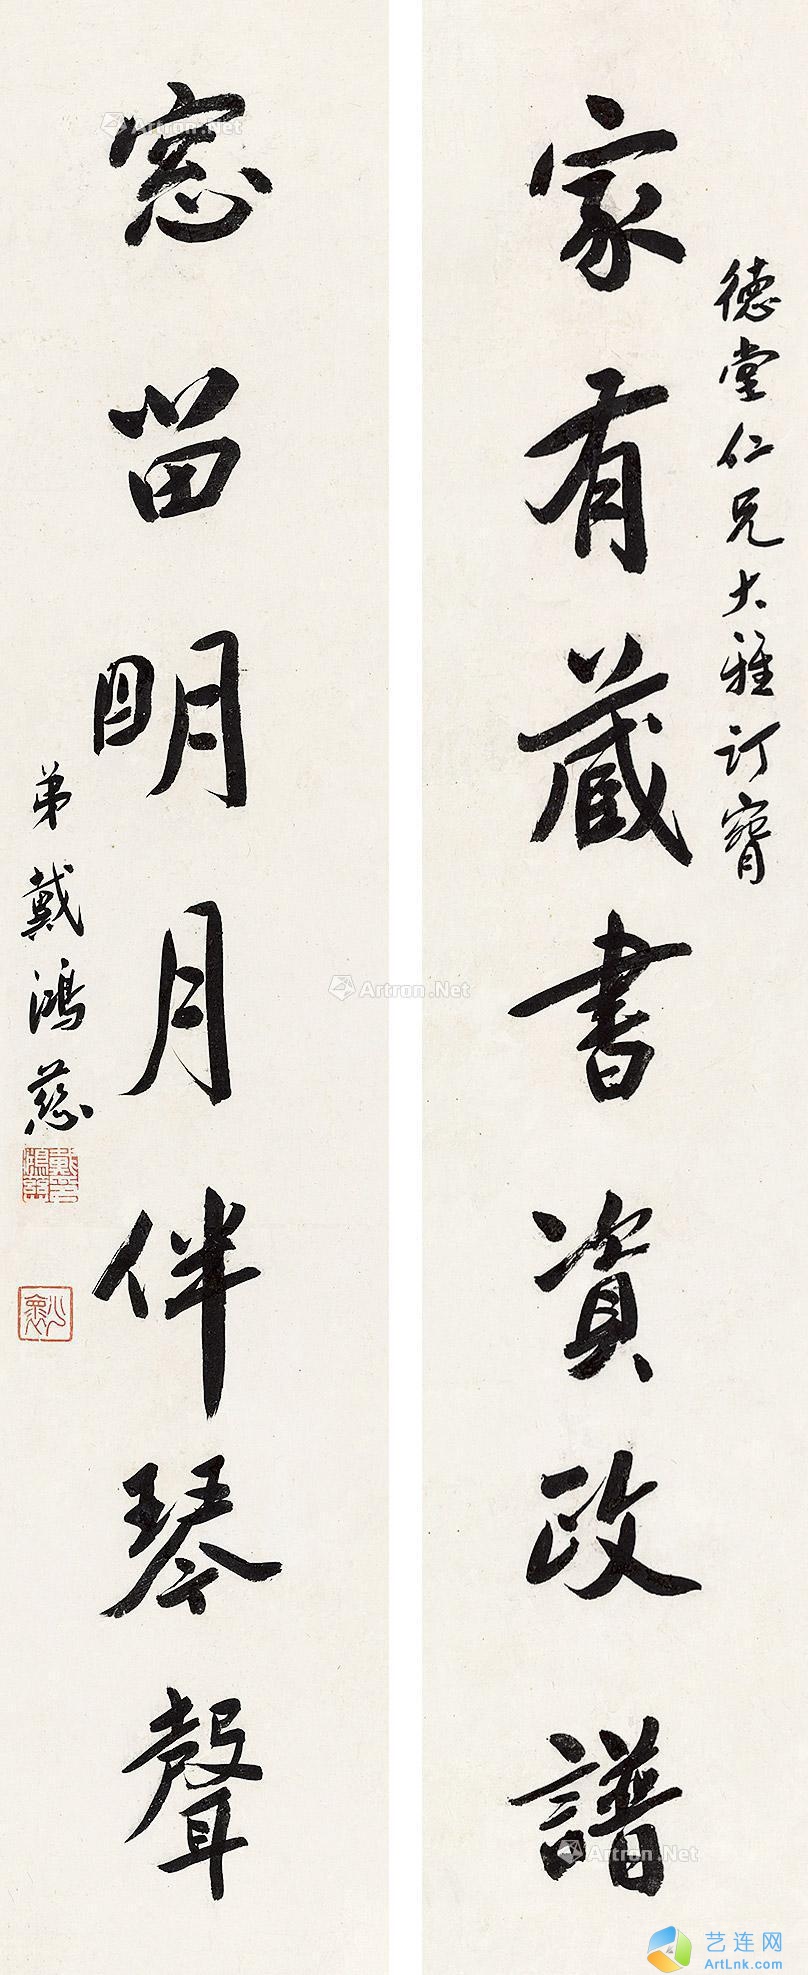 德堂仁兄大雅訂
家有藏書資政譜
窓留明月伴琴聲
弟戴鴻慈
Artron.Net
Artron.Net
Artron.Net
艺连网
ArtLnk.com